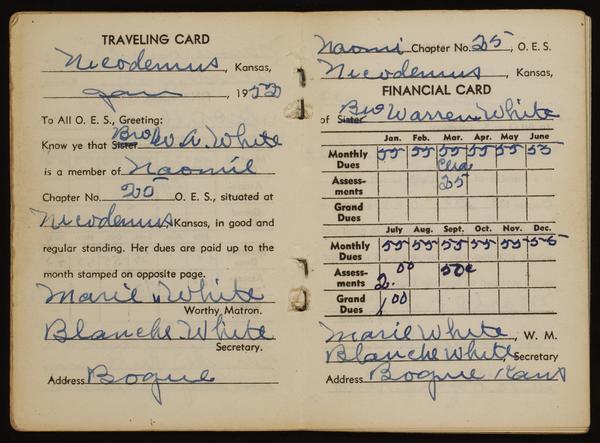 TRAVELING CARD
Nicodemus, Kansas,
Jan, 1953
To All O. E. S., Greeting:
Know ye that Sister Bro W. A. White
is a member of Naomie
Chapter No. 25 O. E. S., situated at
Nicodemus, Kansas, in good and
regular standing. Her dues are paid up to the
month stamped on opposite page.
Marie White
Worthy Matron.
Blanche White
Secretary.
Address Bogue
Naomi Chapter No. 25, O. E. S.
Nicodemus, Kansas,
FINANCIAL CARD
of Sister Bro Warren White
Jan. Feb. Mar. Apr. May June
Monthly Dues 55 55 55 55 55 55
Assess-ments 25
Grand Dues
July Aug. Sept. Oct. Nov. Dec.
Monthly Dues 55 55 55 55 55 55
Assess-ments 2.00 50c
Grand Dues 1.00
Marie White, W. M.
Blanche White, Secretary
Address Bogue Kans